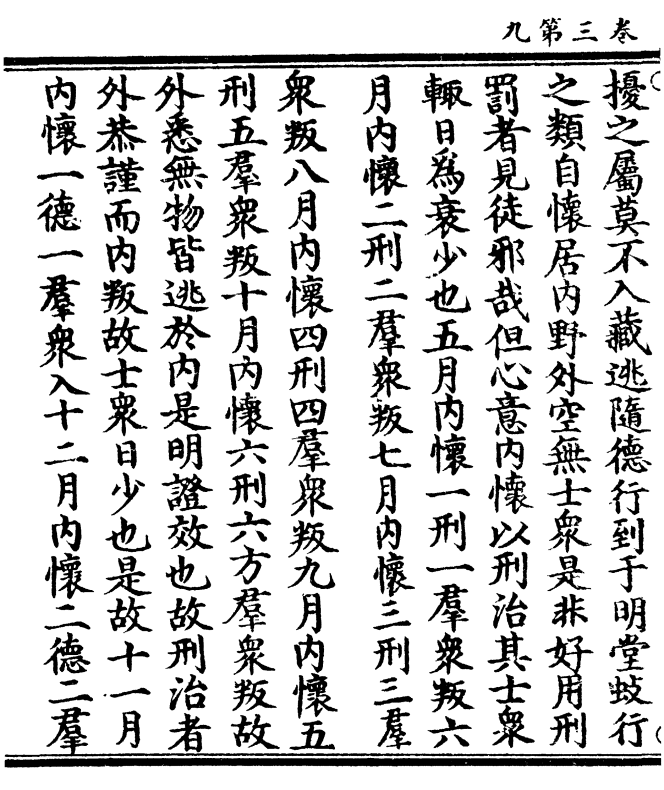 卷三第九
擾之屬莫不入藏逃隨德行到于明堂蚑行
之類自懷居內野外空無士衆是非好用刑
罰者見徒邪哉但心意內懷以刑治其士衆
輙日爲衰少也五月內懷一刑一羣衆叛六
月內懷二刑二羣衆叛七月內懷三刑三羣
衆叛八月內懷四刑四羣衆叛九月內懷五
刑五羣衆叛十月內懷六刑六方羣衆叛故
外悉無物皆逃於內是明證效也故刑治者
外恭謹而內叛故士衆日少也是故十一月
內懷一德一羣衆入十二月內懷二德二羣